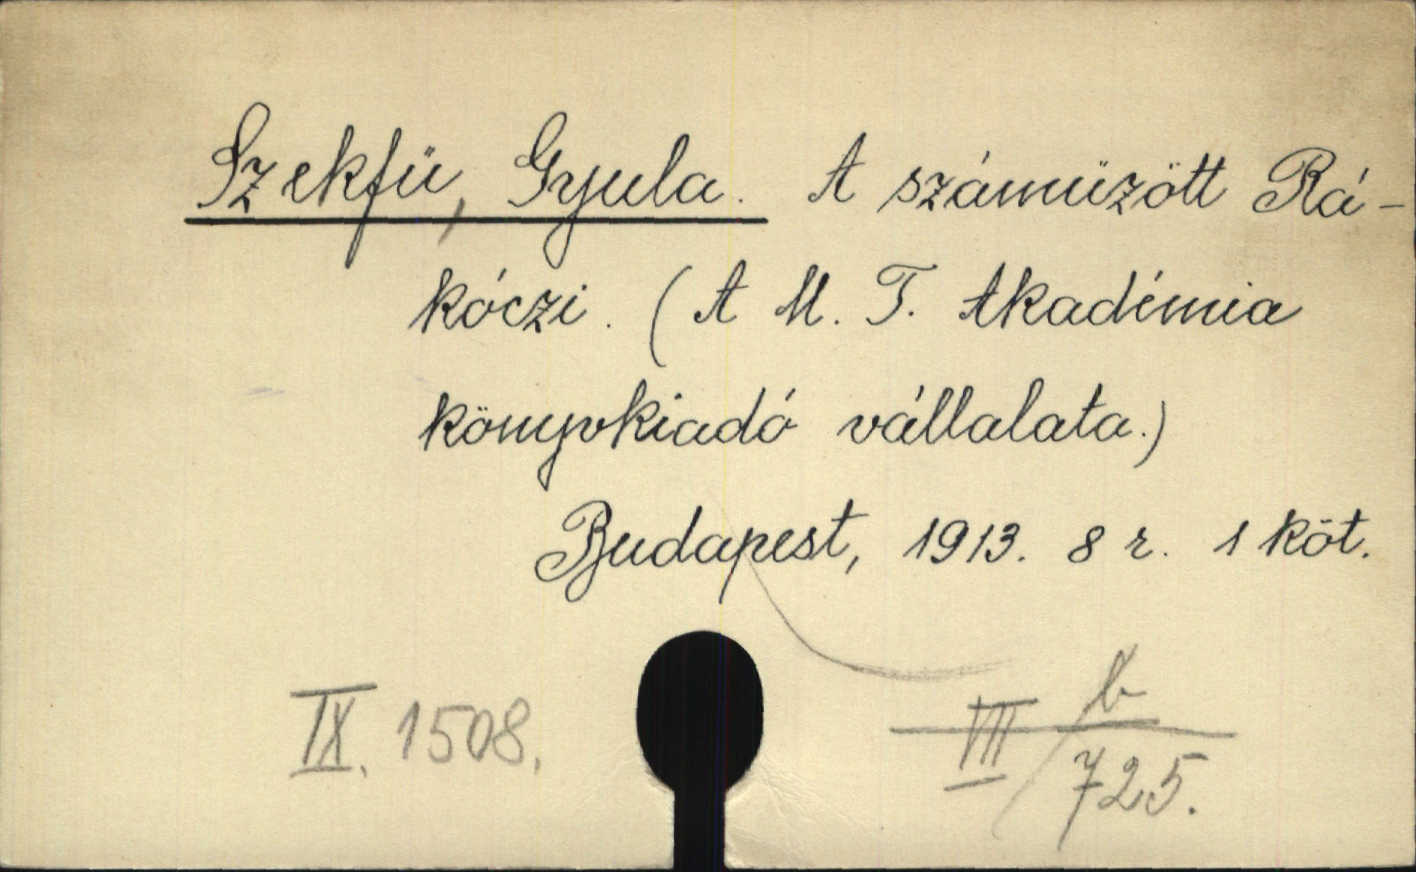 Szekfü, Gyula. A száműzött Rá-
kóczi. (A M. T. Akadémia
könyvkiadó vállalata.)
Budapest, 1913. 8 r. 1 köt.
IX. 1508.
VIII / b
725.